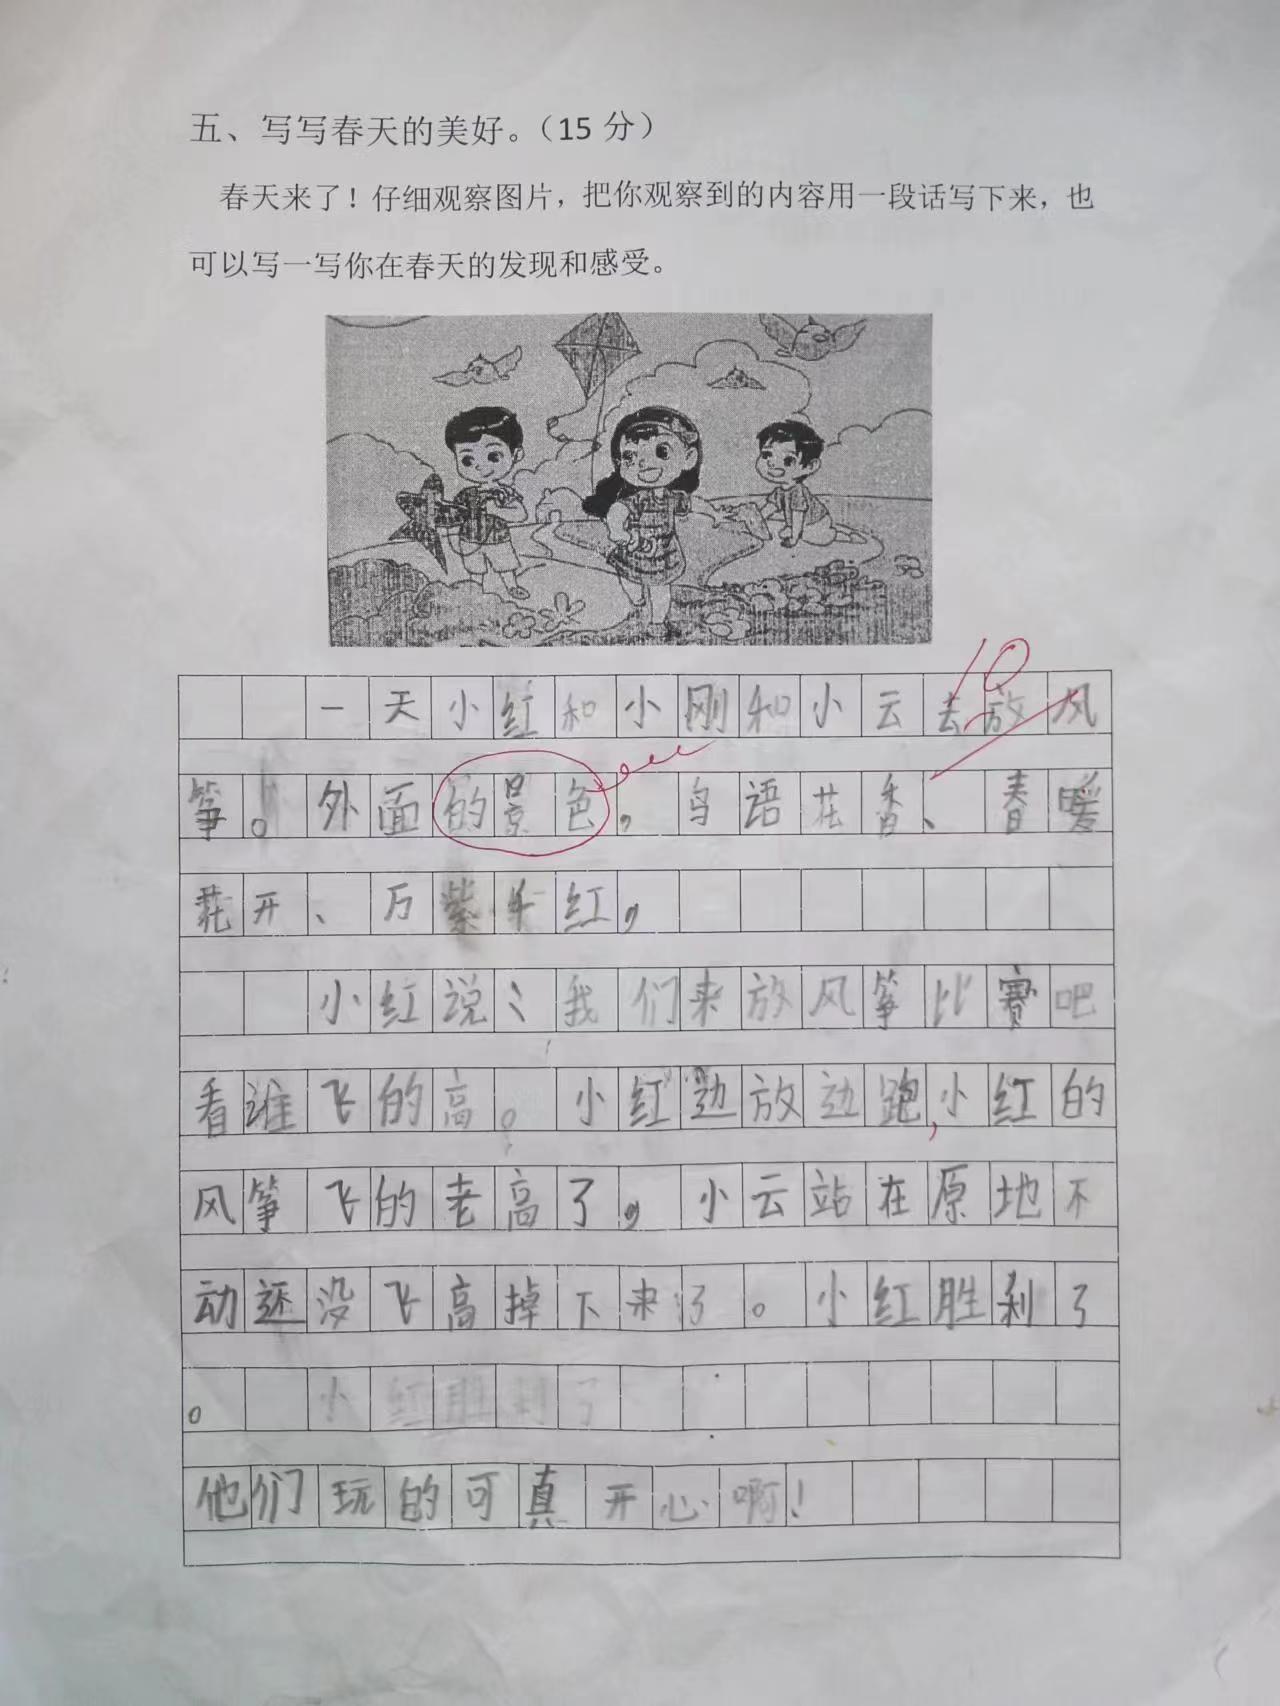 五、写写春天的美好。（15 分）
春天来了！仔细观察图片，把你观察到的内容用一段话写下来，也
可以写一写你在春天的发现和感受。
10
一天小红和小刚和小云去放风
筝。外面的景色，鸟语花香、春暖
花开、万紫千红。
小红说：我们来放风筝比赛吧
看谁飞的高。小红边放边跑，小红的
风筝飞的老高了。小云站在原地不
动还没飞高掉下来了。小红胜利了
。小红胜利了
他们玩的可真开心啊！